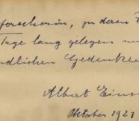 forscherin, zu deren
Tage lang gelegen
ndlichen Gedenken
Albert Eins
Oktober 1921